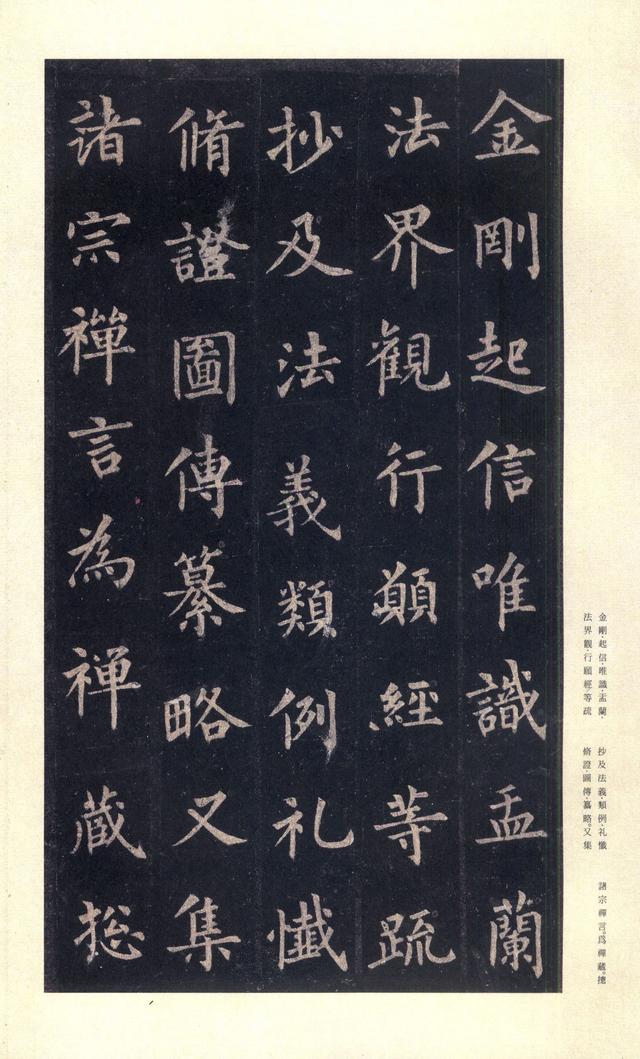 金剛起信唯識盂蘭
法界觀行願經等疏
抄及法義類例礼懺
脩證圖傳纂略又集
諸宗禪言為禪蔵揔
金剛·起信·唯識·盂蘭·
法界觀·行願經·等疏
抄及法義類例·礼懺
脩證·圖傳·纂略。又集
諸宗禪言。爲禪藏。揔